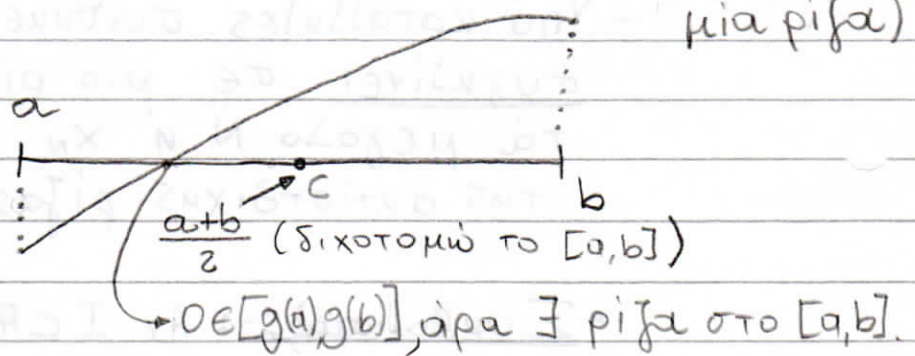 μία ρίζα)
a
c
b
a+b/2 (διχοτομώ το [a,b])
0∈[g(a),g(b)], άρα ∃ ρίζα στο [a,b].